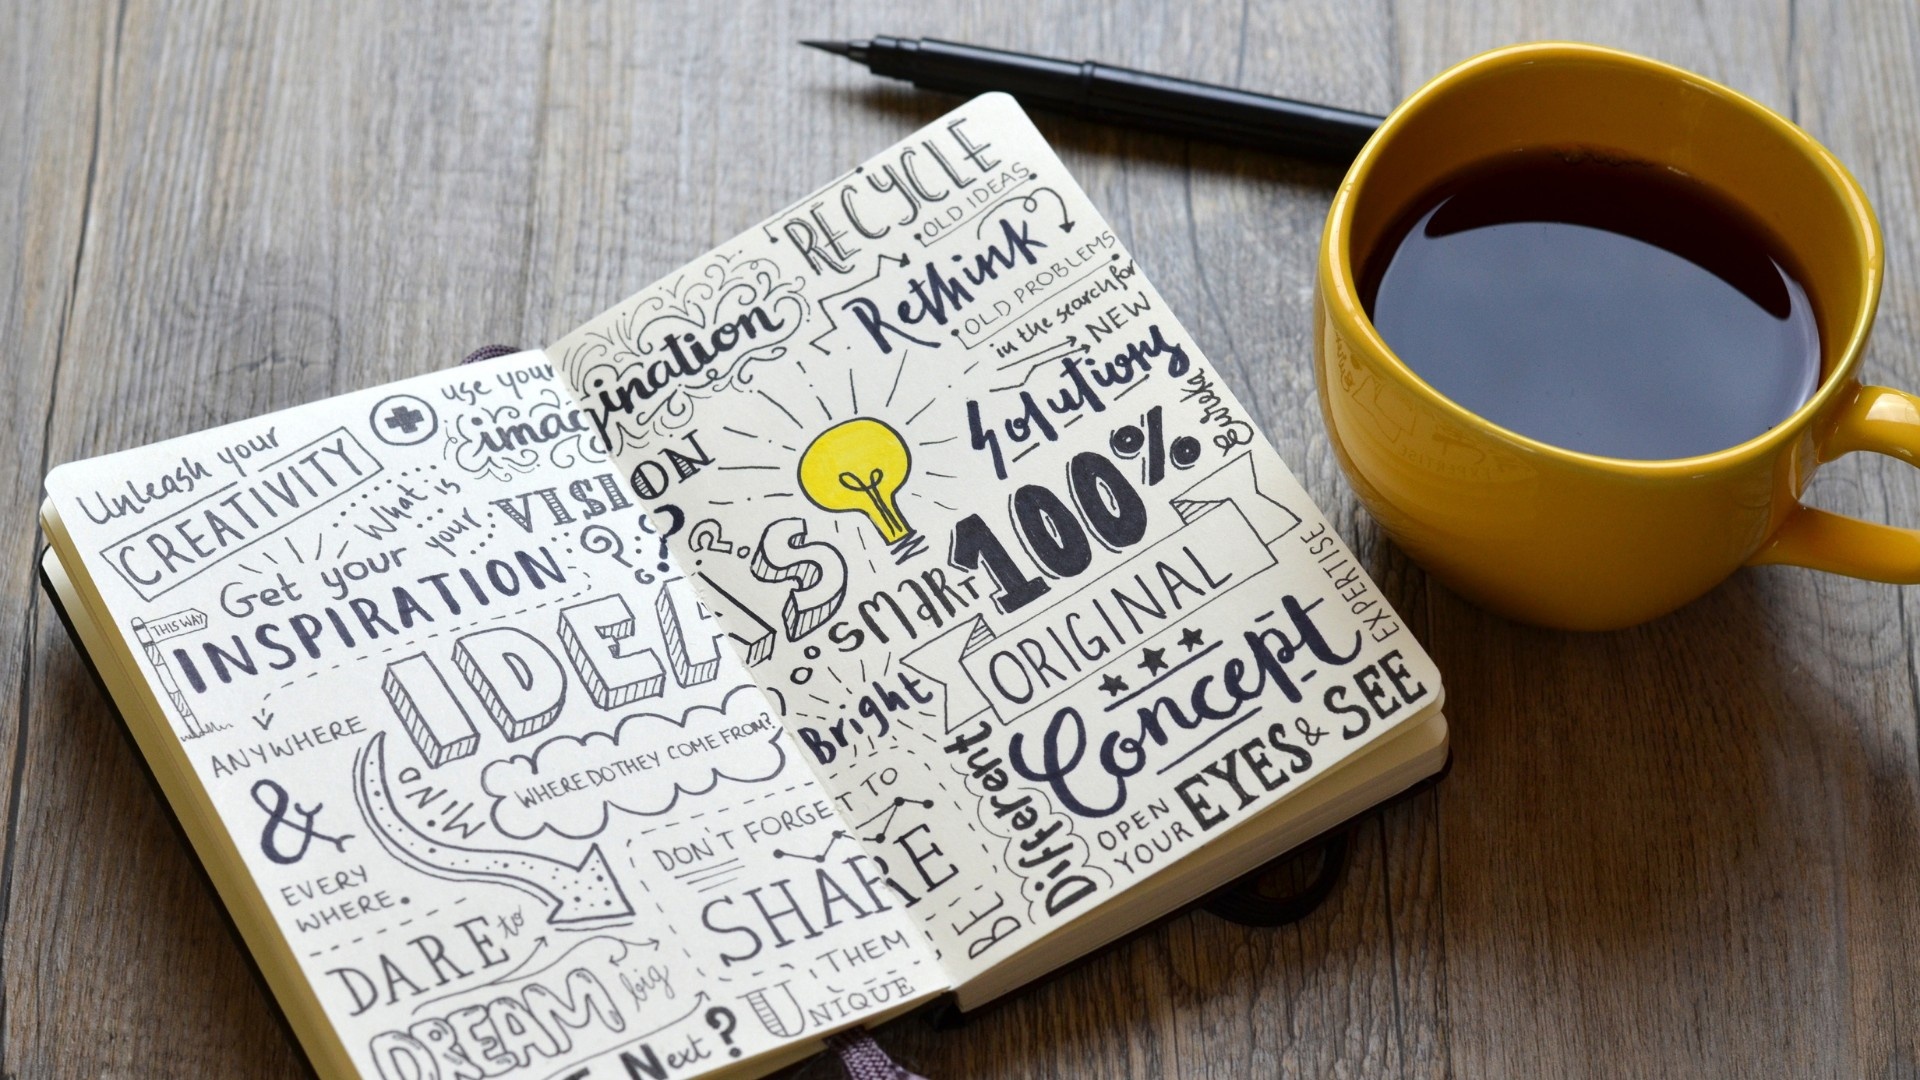 Unleash your
CREATIVITY
use your
imagination
What is
your VISION
??
Get your
INSPIRATION
THIS WAY
ANYWHERE
&
EVERY
WHERE.
MIND
IDEAS
WHERE DO THEY COME FROM?
DON'T FORGET TO
SHARE
THEM
DARE to
DREAM big
UNIQUE
Next?
RECYCLE
OLD IDEAS
Rethink
OLD PROBLEMS
in the search for
NEW
Solutions
eureka
?
SMART
100%
ORIGINAL
Bright
Concept
EXPERTISE
BE
Different
OPEN
YOUR EYES & SEE